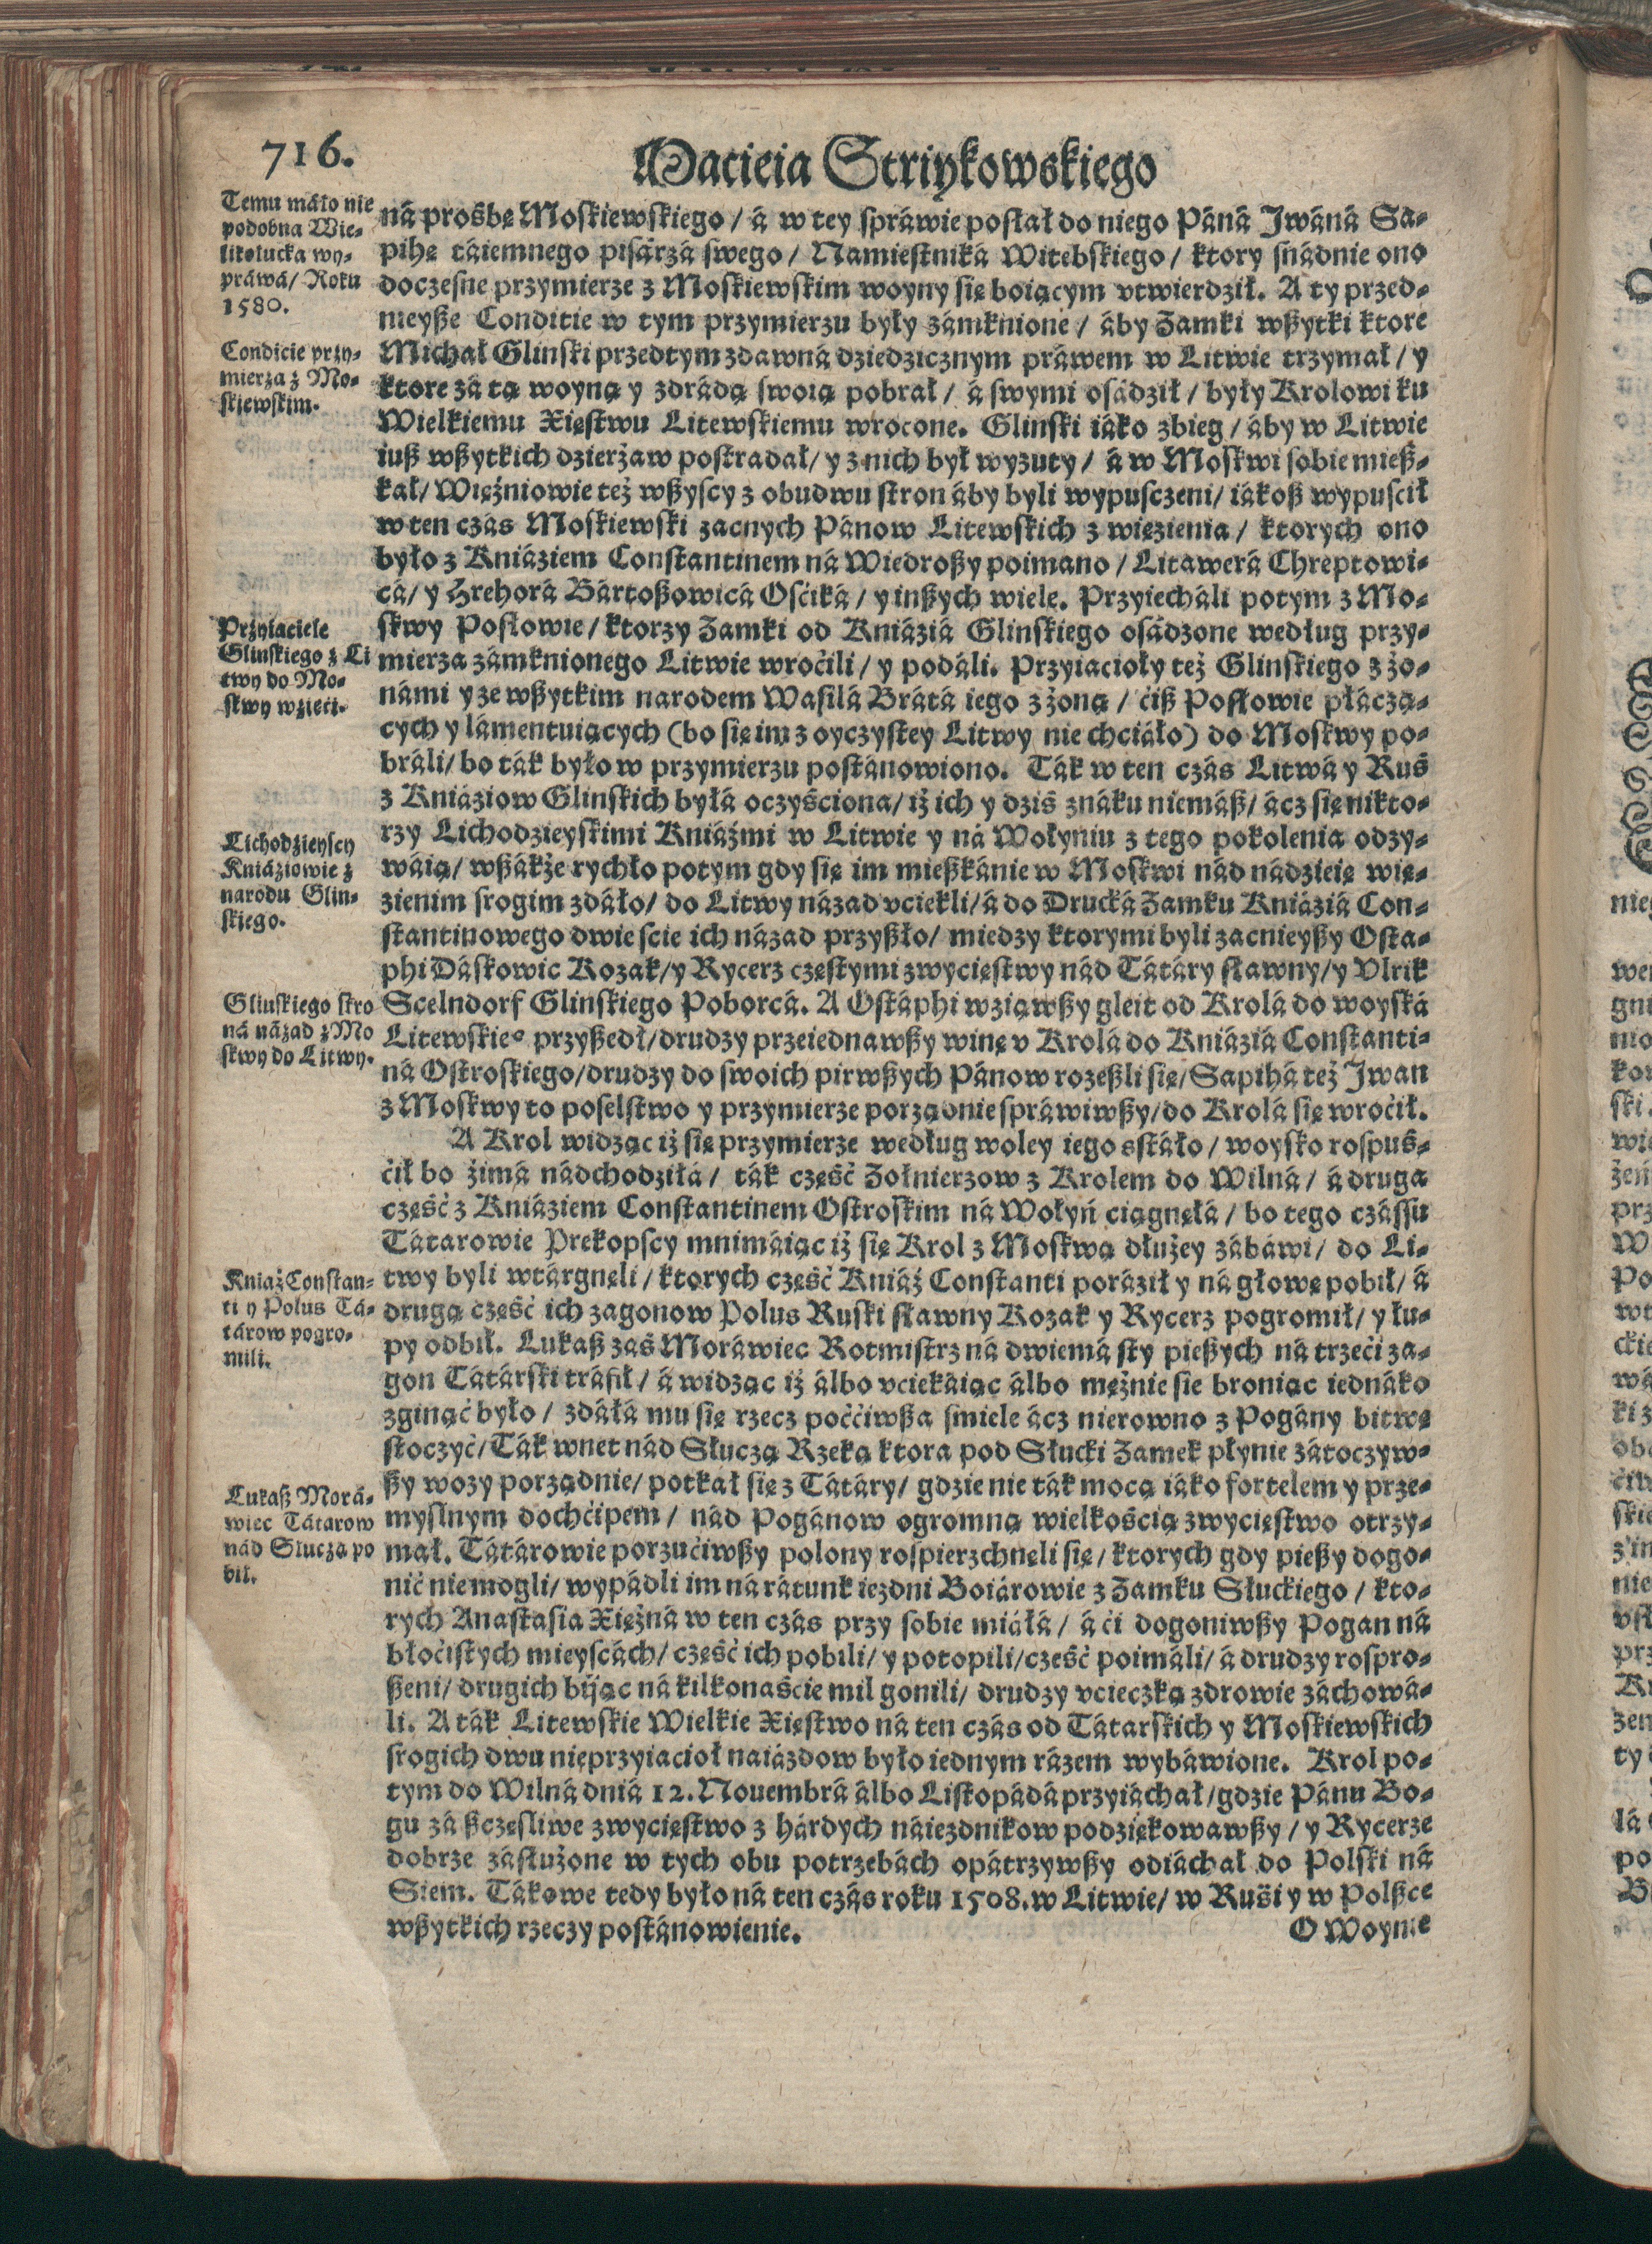 716.
Macieia Striykowskiego
Temu máło nie
podobna Wie-
likolucka wy-
práwá/ Roku
1580.
Condicie przy-
mierza z Mo-
skiewskim.
Przyiaciele
Glinskiego z Li
twy do Mo-
skwy wzięci.
Lichodzieyscy
Kniáziowie z
narodu Glin-
skiego.
Glinskiego stro
ná názad z Mo
skwy do Litwy.
Kniaź Constan-
ti y Polus Tá-
tárow pogro-
mili.
Lukasz Morá-
wiec Tátarow
nád Słuczą po
bił.
ná prośbę Moskiewskiego / á w tey spráwie posłał do niego Páná Jwáná Sa-
pihę táiemnego pisárzá swego / Namiestniká Witebskiego / ktory snádnie ono
doczesne przymierze z Moskiewskim woyny się boiącym vtwierdził. A ty przed-
nieysze Conditie w tym przymierzu były zámknione / áby Zamki wszytki ktore
Michał Glinski przedtym zdawná dziedzicznym práwem w Litwie trzymał / y
ktore zá tą woyną y zdrádą swoią pobrał / á swymi osádził / były Krolowi ku
Wielkiemu Xięstwu Litewskiemu wrocone. Glinski iáko zbieg / áby w Litwie
iusz wszytkich dzierżaw postradał / y z nich był wyzuty / á w Moskwi sobie miesz-
kał / Więźniowie też wszyscy z obudwu stron áby byli wypusczeni / iákosz wypuscił
w ten czás Moskiewski zacnych Pánow Litewskich z więzienia / ktorych ono
było z Kniáziem Constantinem ná Wiedroszy poimano / Litawerá Chreptowi-
cá / y Hrehorá Bártoszowicá Ośćiká / y inszych wiele. Przyiecháli potym z Mo-
skwy Posłowie / ktorzy Zamki od Kniáziá Glinskiego osádzone według przy-
mierza zámknionego Litwie wroćili / y podáli. Przyiacioły też Glinskiego z żo-
námi y ze wszytkim narodem Wasilá Brátá iego z żoną / ćisz Posłowie płáczą-
cych y lámentuiących (bo się im z oyczystey Litwy nie chciáło) do Moskwy po-
bráli / bo ták było w przymierzu postánowiono. Ták w ten czás Litwá y Ruś
z Kniáziow Glinskich byłá oczyściona / iż ich y dziś znáku niemász / ácz się nikto-
rzy Lichodzieyskimi Kniáźmi w Litwie y ná Wołyniu z tego pokolenia odzy-
wáią / wszákże rychło potym gdy się im mieszkánie w Moskwi nád nádzieię wię-
zienim srogim zdáło / do Litwy názad vciekli / á do Drucká Zamku Kniáziá Con-
stantinowego dwie scie ich názad przyszło / miedzy ktorymi byli zacnieyszy Osta-
phi Dáskowic Kozak / y Rycerz częstymi zwycięstwy nád Tátáry sławny / y Vlrik
Scelndorf Glinskiego Poborcá. A Ostáphi wziąwszy gleit od Krolá do woyská
Litewskieº przyszedł / drudzy przeiednawszy winę v Krolá do Kniáziá Constanti-
ná Ostroskiego / drudzy do swoich pirwszych Pánow rozeszli się / Sapihá też Jwan
z Moskwy to poselstwo y przymierze porządnie spráwiwszy / do Krolá się wroćił.
A Krol widząc iż się przymierze według woley iego sstáło / woysko rospuś-
ćił bo źimá nádchodziłá / ták część Zołnierzow z Krolem do Wilná / á druga
część z Kniáziem Constantinem Ostroskim ná Wołyń ciągnęłá / bo tego czássu
Tátarowie Prekopscy mnimáiąc iż się Krol z Moskwą dłużey zábáwi / do Li-
twy byli wtárgnęli / ktorych część Kniáź Constanti poráził y ná głowę pobił / á
drugą część ich zagonow Polus Ruski sławny Kozak y Rycerz pogromił / y łu-
py odbił. Lukasz zaś Moráwiec Rotmistrz ná dwiemá sty pieszych ná trzeći za-
gon Tátárski tráfił / á widząc iż álbo vciekáiąc álbo mężnie sie broniąc iednáko
zginąć było / zdáłá mu się rzecz poććiwsza smiele ácz nierowno z Pogány bitwę
stoczyć / Ták wnet nád Słuczą Rzeką ktora pod Słucki Zamek płynie zátoczyw-
szy wozy porządnie / potkał się z Tátáry / gdzie nie ták mocą iáko fortelem y prze-
myslnym dochćipem / nád Pogánow ogromną wielkośćią zwycięstwo otrzy-
mał. Tátárowie porzućiwszy polony rospierzchnęli się / ktorych gdy pieszy dogo-
nić niemogli / wypádli im ná rátunk iezdni Boiárowie z Zamku Słuckiego / kto-
rych Anastasia Xiężná w ten czás przy sobie miáłá / á ći dogoniwszy Pogan ná
błoćistych mieyscách / część ich pobili / y potopili / część poimáli / á drudzy rospro-
szeni / drugich bijąc ná kilkonaście mil gonili / drudzy vcieczką zdrowie záchowá-
li. A ták Litewskie Wielkie Xięstwo ná ten czás od Tátarskich y Moskiewskich
srogich dwu nieprzyiacioł naiázdow było iednym rázem wybáwione. Krol po-
tym do Wilná dniá 12. Nouembrá álbo Listopádá przyiáchał / gdzie Pánu Bo-
gu zá szczęsliwe zwycięstwo z hárdych náiezdnikow podziękowawszy / y Rycerze
dobrze zásłużone w tych obu potrzebách opátrzywszy odiáchał do Polski ná
Siem. Tákowe tedy było ná ten czás roku 1508. w Litwie / w Ruśi y w Polszce
wszytkich rzeczy postánowienie.
O Woynie